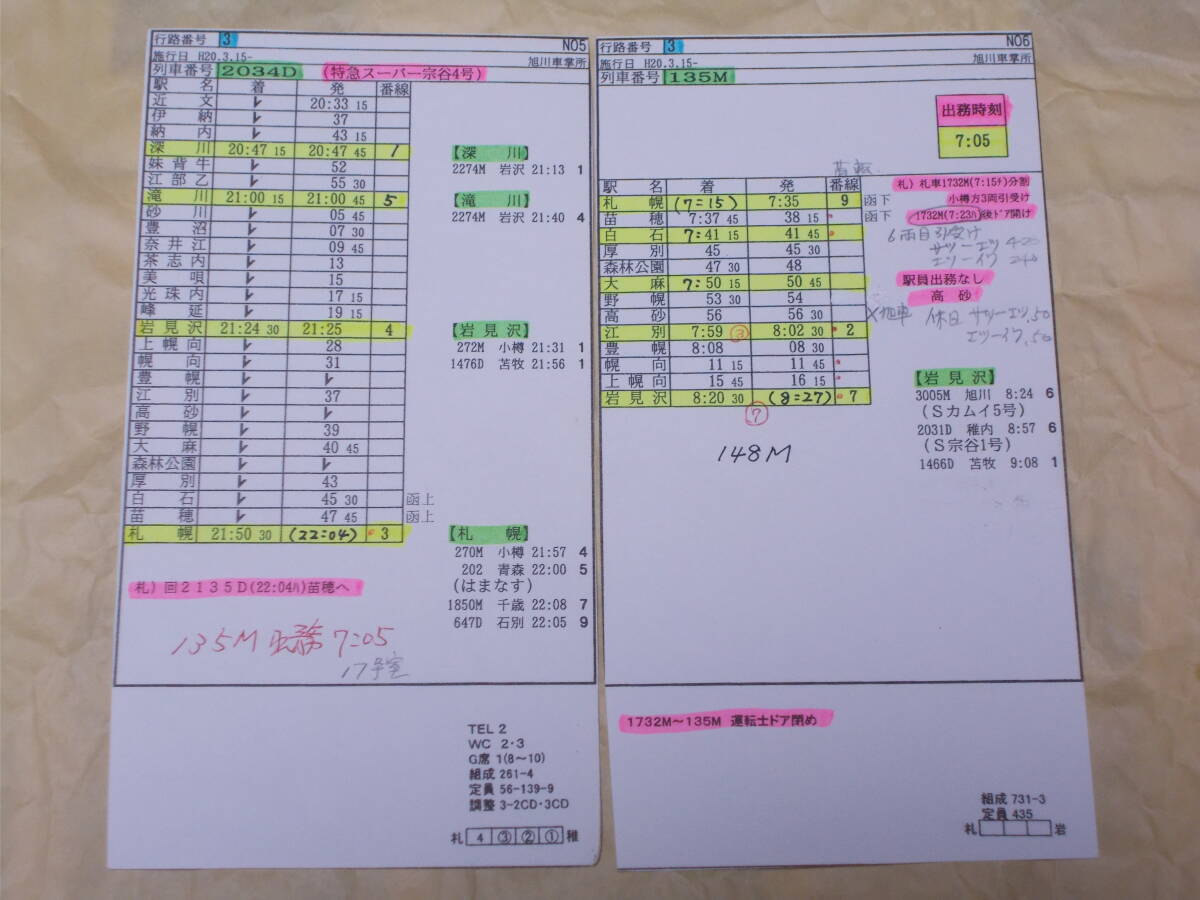 行路番号 3 NO5
施行日 H20.3.15- 旭川車掌所
列車番号 2034D (特急スーパー宗谷4号)
駅 名 着 発 番線
近 文 レ 20:33 15
伊 納 レ 37
納 内 レ 43 15
深 川 20:47 15 20:47 45 1
妹背牛 レ 52
江部乙 レ 55 30
滝 川 21:00 15 21:00 45 5
砂 川 レ 05 45
豊 沼 レ 07 30
奈井江 レ 09 45
茶志内 レ 13
美 唄 レ 15
光珠内 レ 17 15
峰 延 レ 19 15
岩見沢 21:24 30 21:25 4
上幌向 レ 28
幌 向 レ 31
豊 幌 レ レ
江 別 レ 37
高 砂 レ レ
野 幌 レ 39
大 麻 レ 40 45
森林公園 レ レ
厚 別 レ 43
白 石 レ 45 30 函上
苗 穂 レ 47 45 函上
札 幌 21:50 30 (22:04) 3
【深 川】
2274M 岩沢 21:13 1
【滝 川】
2274M 岩沢 21:40 4
【岩見沢】
272M 小樽 21:31 1
1476D 苫牧 21:56 1
【札 幌】
270M 小樽 21:57 4
202 青森 22:00 5
(はまなす)
1850M 千歳 22:08 7
647D 石別 22:05 9
札) 回2135D(22:04ﾊ)苗穂へ
135M 出務 7:05
17号室
TEL 2
WC 2・3
G席 1(8〜10)
組成 261-4
定員 56-139-9
調整 3-2CD・3CD
札 4 ③ ② ① 稚
行路番号 3 NO6
施行日 H20.3.15- 旭川車掌所
列車番号 135M
出務時刻
7:05
駅 名 着 発 番線
札 幌 (7:15) 7:35 9 函下
苗 穂 7:37 45 38 15 函下
白 石 7:41 15 41 45
厚 別 45 45 30
森林公園 47 30 48
大 麻 7:50 15 50 45
野 幌 53 30 54
高 砂 56 56 30
江 別 7:59 ③ 8:02 30 2
豊 幌 8:08 08 30
幌 向 11 15 11 45
上幌向 15 45 16 15
岩見沢 8:20 30 (8:27) 7
⑦
148M
札) 札車1732M(7:15ﾁ)分割
小樽方3両引受け
1732M(7:23ﾊ)後ドア開け
6両目引受け
サツーエツ 420
エツーイワ 240
駅員出務なし
高 砂
休日 サツーエツ.50
エツーイワ.50
【岩見沢】
3005M 旭川 8:24 6
(Sカムイ5号)
2031D 稚内 8:57 6
(S宗谷1号)
1466D 苫牧 9:08 1
1732M〜135M 運転士ドア閉め
組成 731-3
定員 435
札 岩